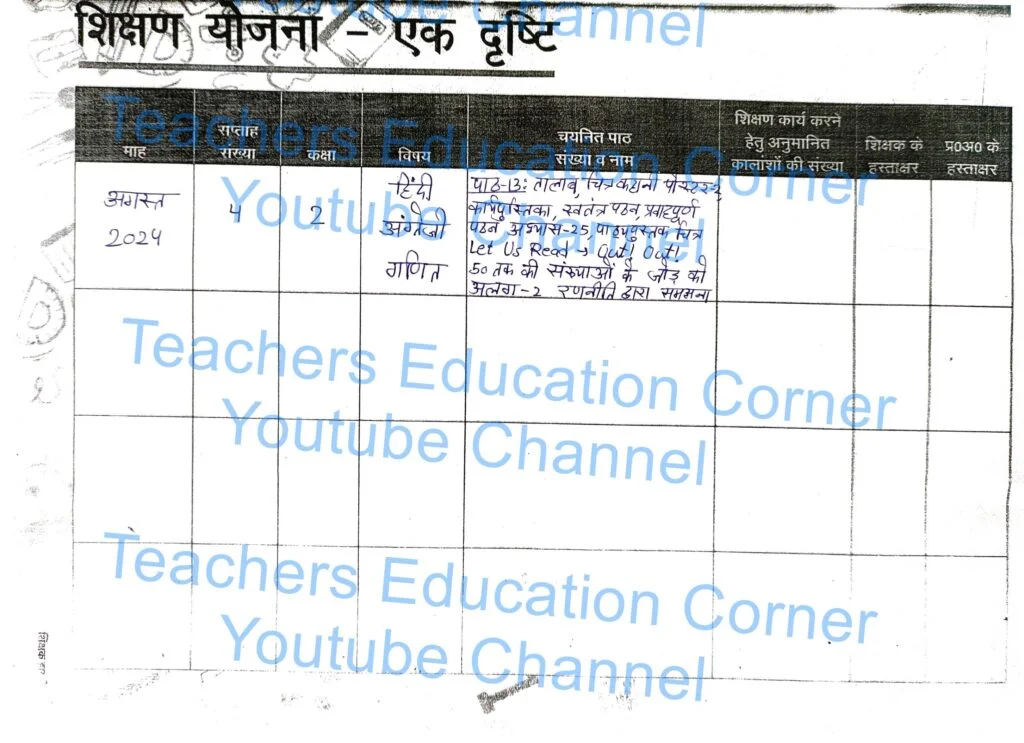 Youtube Channel
शिक्षण योजना - एक दृष्टि
Teachers Education Corner
Youtube Channel
माह
सप्ताह
संख्या
कक्षा
विषय
चयनित पाठ
संख्या व नाम
शिक्षण कार्य करने
हेतु अनुमानित
कालांशों की संख्या
शिक्षक के
हस्ताक्षर
प्र0अ0 के
हस्ताक्षर
अगस्त
2024
4
2
हिंदी
अंग्रेजी
गणित
पाठ-13: तालाब, चित्र कहानी पोस्टर-2,
कार्यपुस्तिका, स्वतंत्र पठन, प्रवाहपूर्ण
पठन अभ्यास-25, पाठ्यपुस्तक चित्र
Let Us Read → Out! Out!
50 तक की संख्याओं के जोड़ को
अलग-2 रणनीति द्वारा समझना
Teachers Education Corner
Youtube Channel
Teachers Education Corner
Youtube Channel